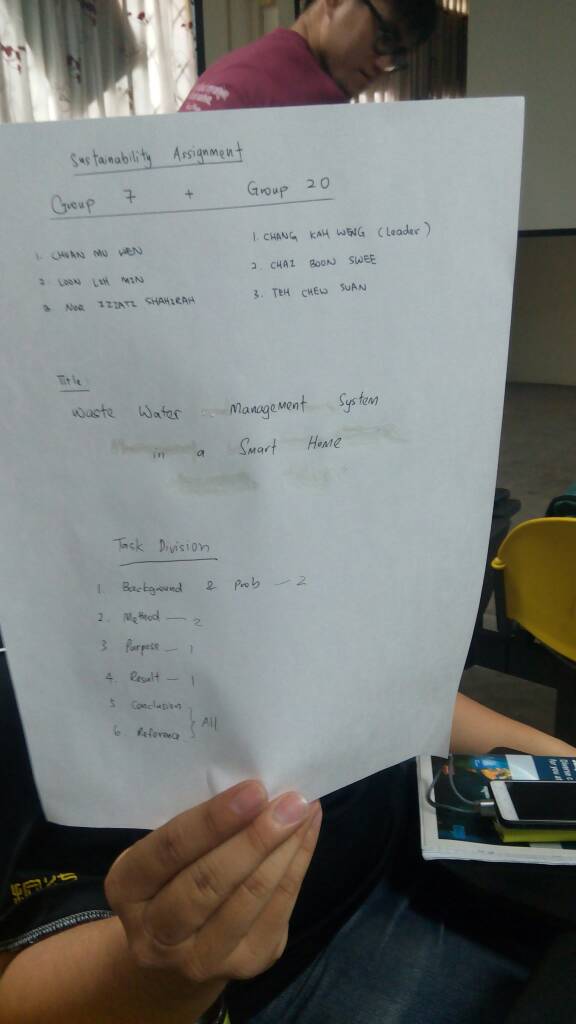 Sustainability Assignment
Group 7 + Group 20
1. CHUAN MU WEN
2. LOON LEH MIN
3. NOR IZZATI SHAHIRAH
1. CHANG KAH WENG (Leader)
2. CHAI BOON SWEE
3. TEH CHEW SUAN
Title
Waste Water Management System
in a Smart Home
Task Division
1. Background & Prob - 2
2. Method - 2
3. Purpose - 1
4. Result - 1
5 Conclusion
6. Reference } All